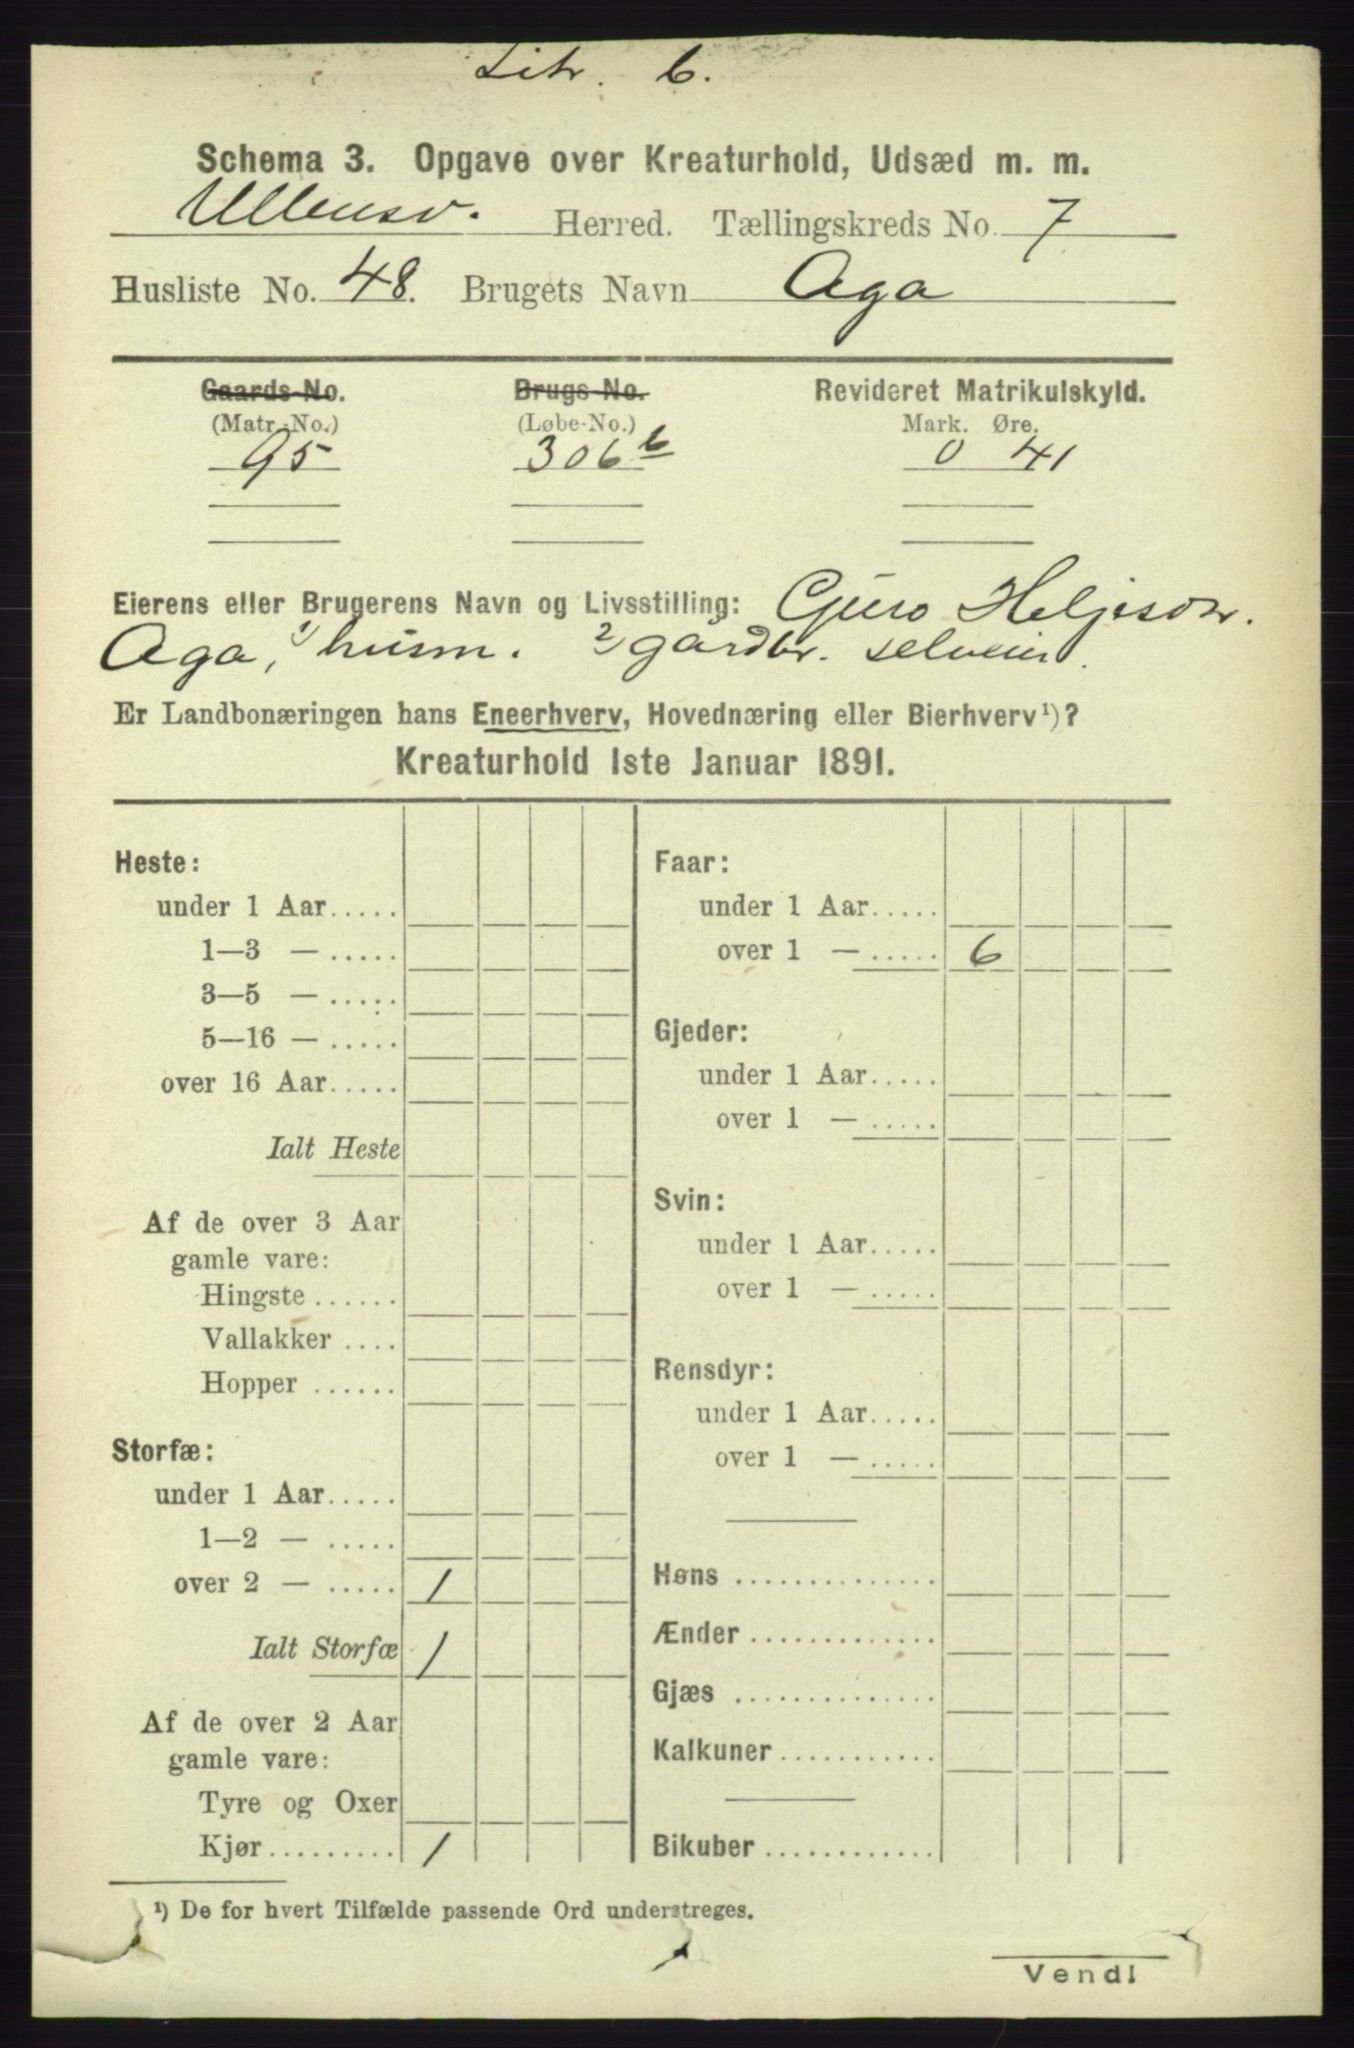 Litr. b.
Schema 3. Opgave over Kreaturhold, Udsæd m. m.
Ullensv. Herred. Tællingskreds No. 7
Husliste No. 48. Brugets Navn Aga
Gaards-No. Brugs-No. Revideret Matrikulskyld.
(Matr.-No.) (Løbe-No.) Mark. Øre.
95 306 b 0 41
Eierens eller Brugerens Navn og Livsstilling: Guro Heljesdr.
Aga, 1) husm. 2) gårdbr. selveier.
Er Landbonæringen hans Eneerhverv, Hovednæring eller Bierhverv¹)?
Kreaturhold 1ste Januar 1891.
Heste:
under 1 Aar.....
1—3 — .....
3—5 — .....
5—16 — .....
over 16 Aar.....
Ialt Heste
Af de over 3 Aar
gamle vare:
Hingste ......
Vallakker ....
Hopper ......
Storfæ:
under 1 Aar.....
1—2 — .....
over 2 — ..... 1
Ialt Storfæ 1
Af de over 2 Aar
gamle vare:
Tyre og Oxer
Kjør......... 1
Faar:
under 1 Aar.....
over 1 — ..... 6
Gjeder:
under 1 Aar.....
over 1 — .....
Svin:
under 1 Aar.....
over 1 — .....
Rensdyr:
under 1 Aar.....
over 1 — .....
Høns ..............
Ænder .............
Gjæs ..............
Kalkuner...........
Bikuber ............
¹) De for hvert Tilfælde passende Ord understreges.
Vend!